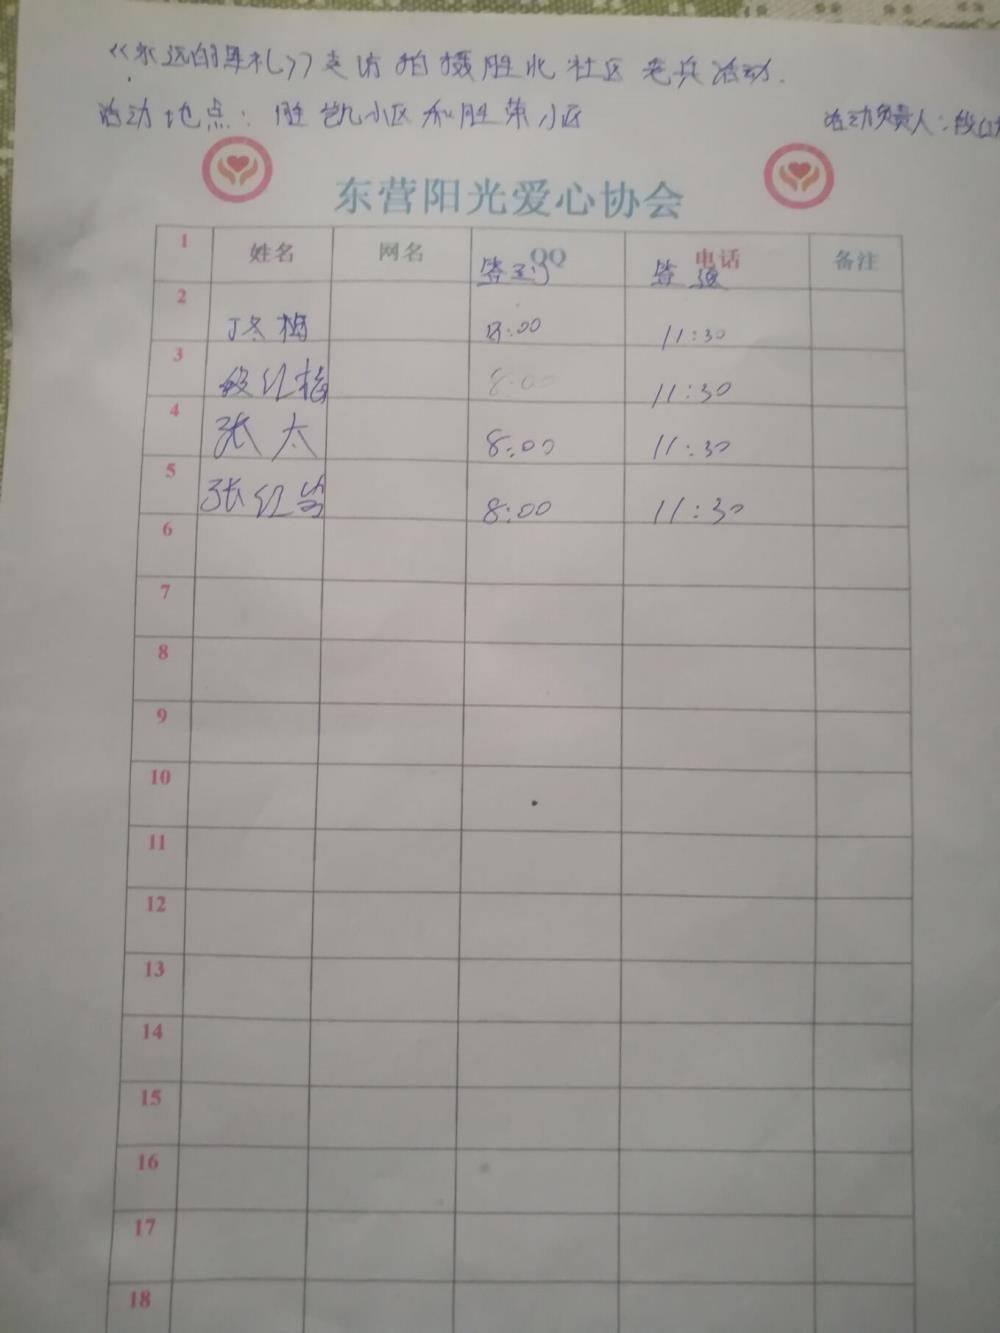 《永远的军礼》走访拍摄胜北社区老兵活动.
活动地点: 胜凯小区和胜荣小区
活动负责人:段红
东营阳光爱心协会
1 姓名 网名 QQ 签到 电话 签退 备注
2 丁冬梅 8:00 11:30
3 段红梅 8:00 11:30
4 张太 8:00 11:30
5 张红 8:00 11:30
6
7
8
9
10
11
12
13
14
15
16
17
18